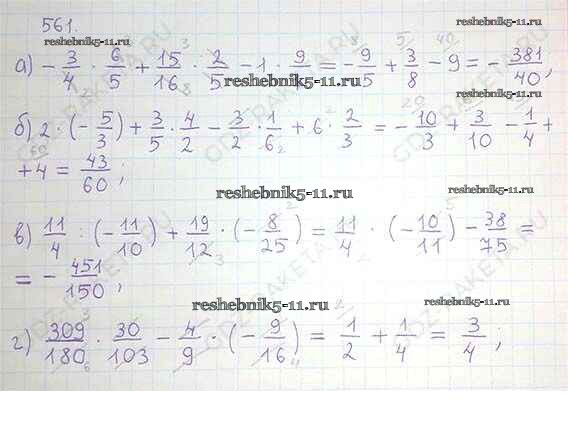 561.
reshebnik5-11.ru
reshebnik5-11.ru
а) - 3/4 · 6/5 + 15/16 · 2/5 - 1 · 9/1 = - 9/5 + 3/8 - 9 = - 381/40,
reshebnik5-11.ru
б) 2 · (- 5/3) + 3/5 · 4/2 - 3/2 · 1/6 + 6 · 2/3 = - 10/3 + 3/10 - 1/4 +
+ 4 = 43/60;
reshebnik5-11.ru
reshebnik5-11.ru
в) 11/4 : (- 11/10) + 19/12 · (- 8/25) = 11/4 · (- 10/11) - 38/75 =
= - 451/150;
reshebnik5-11.ru
reshebnik5-11.ru
г) 309/180 · 30/103 - 4/9 · (- 9/16) = 1/2 + 1/4 = 3/4,
GDZ-RAKETA.RU